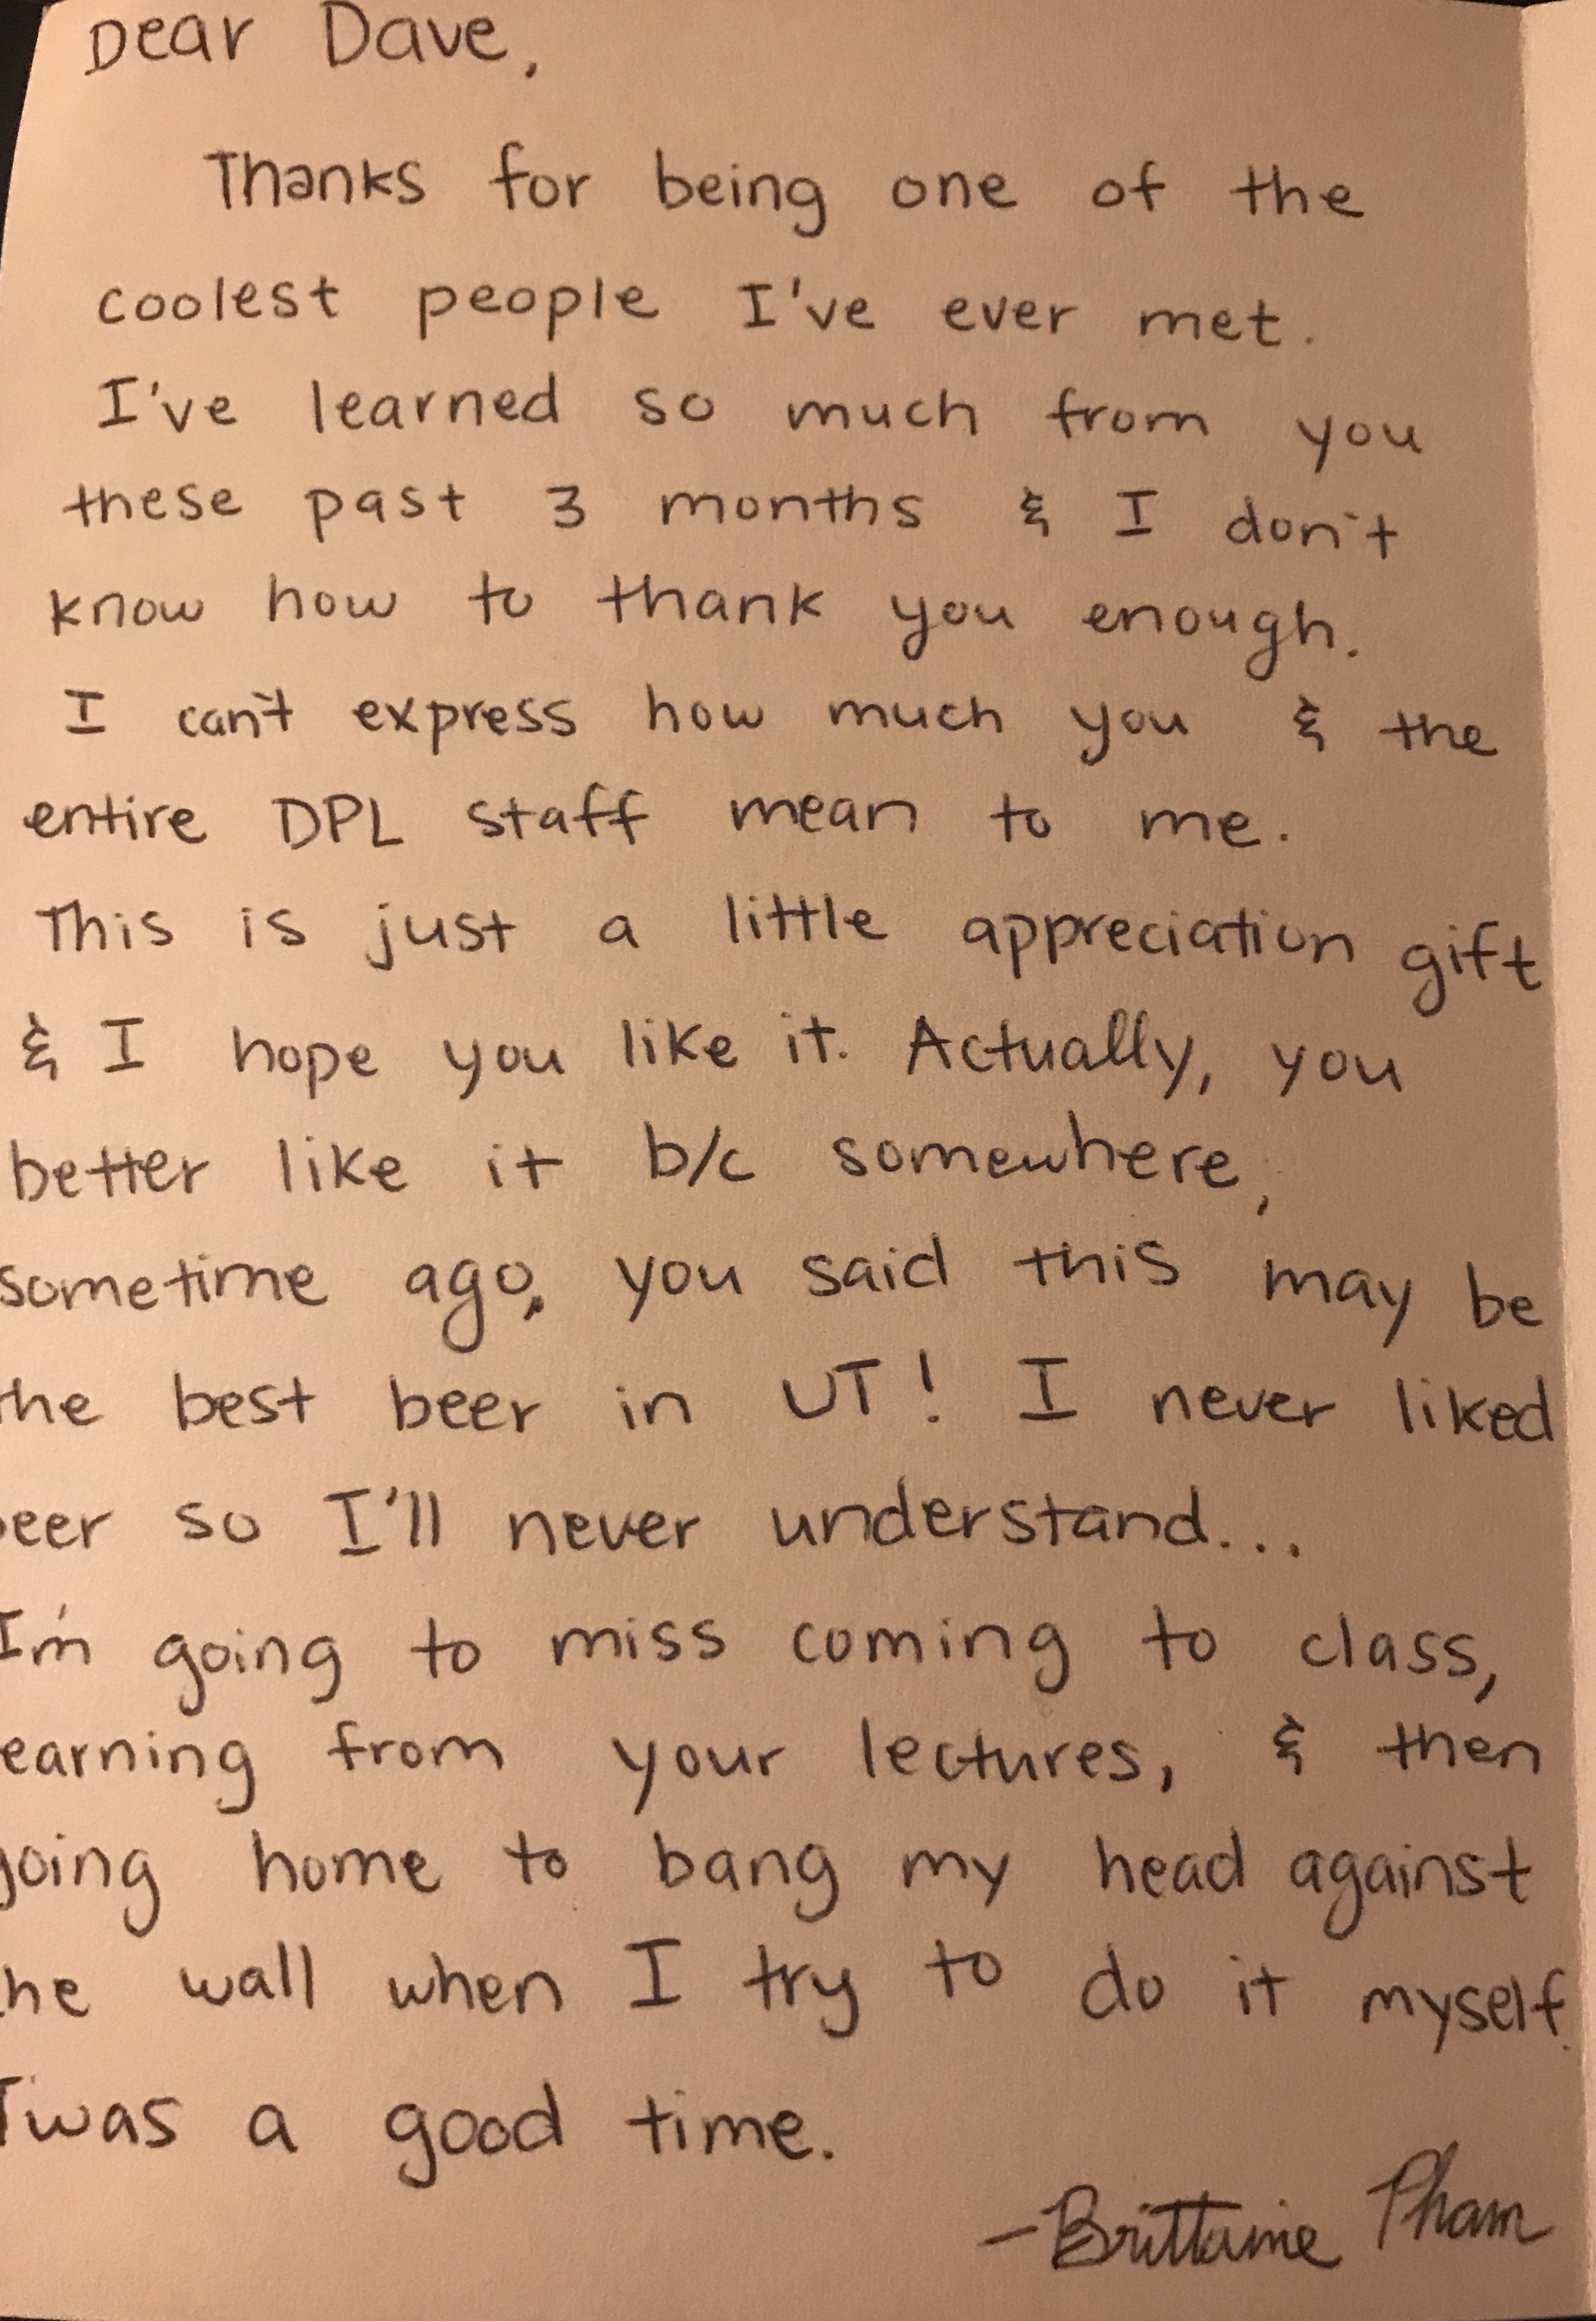 Dear Dave,
Thanks for being one of the
coolest people I've ever met.
I've learned so much from you
these past 3 months & I don't
know how to thank you enough.
I can't express how much you & the
entire DPL staff mean to me.
This is just a little appreciation gift
& I hope you like it. Actually, you
better like it b/c somewhere,
sometime ago, you said this may be
the best beer in UT! I never liked
beer so I'll never understand...
I'm going to miss coming to class,
learning from your lectures, & then
going home to bang my head against
the wall when I try to do it myself.
Twas a good time.
-Brittaine Pham